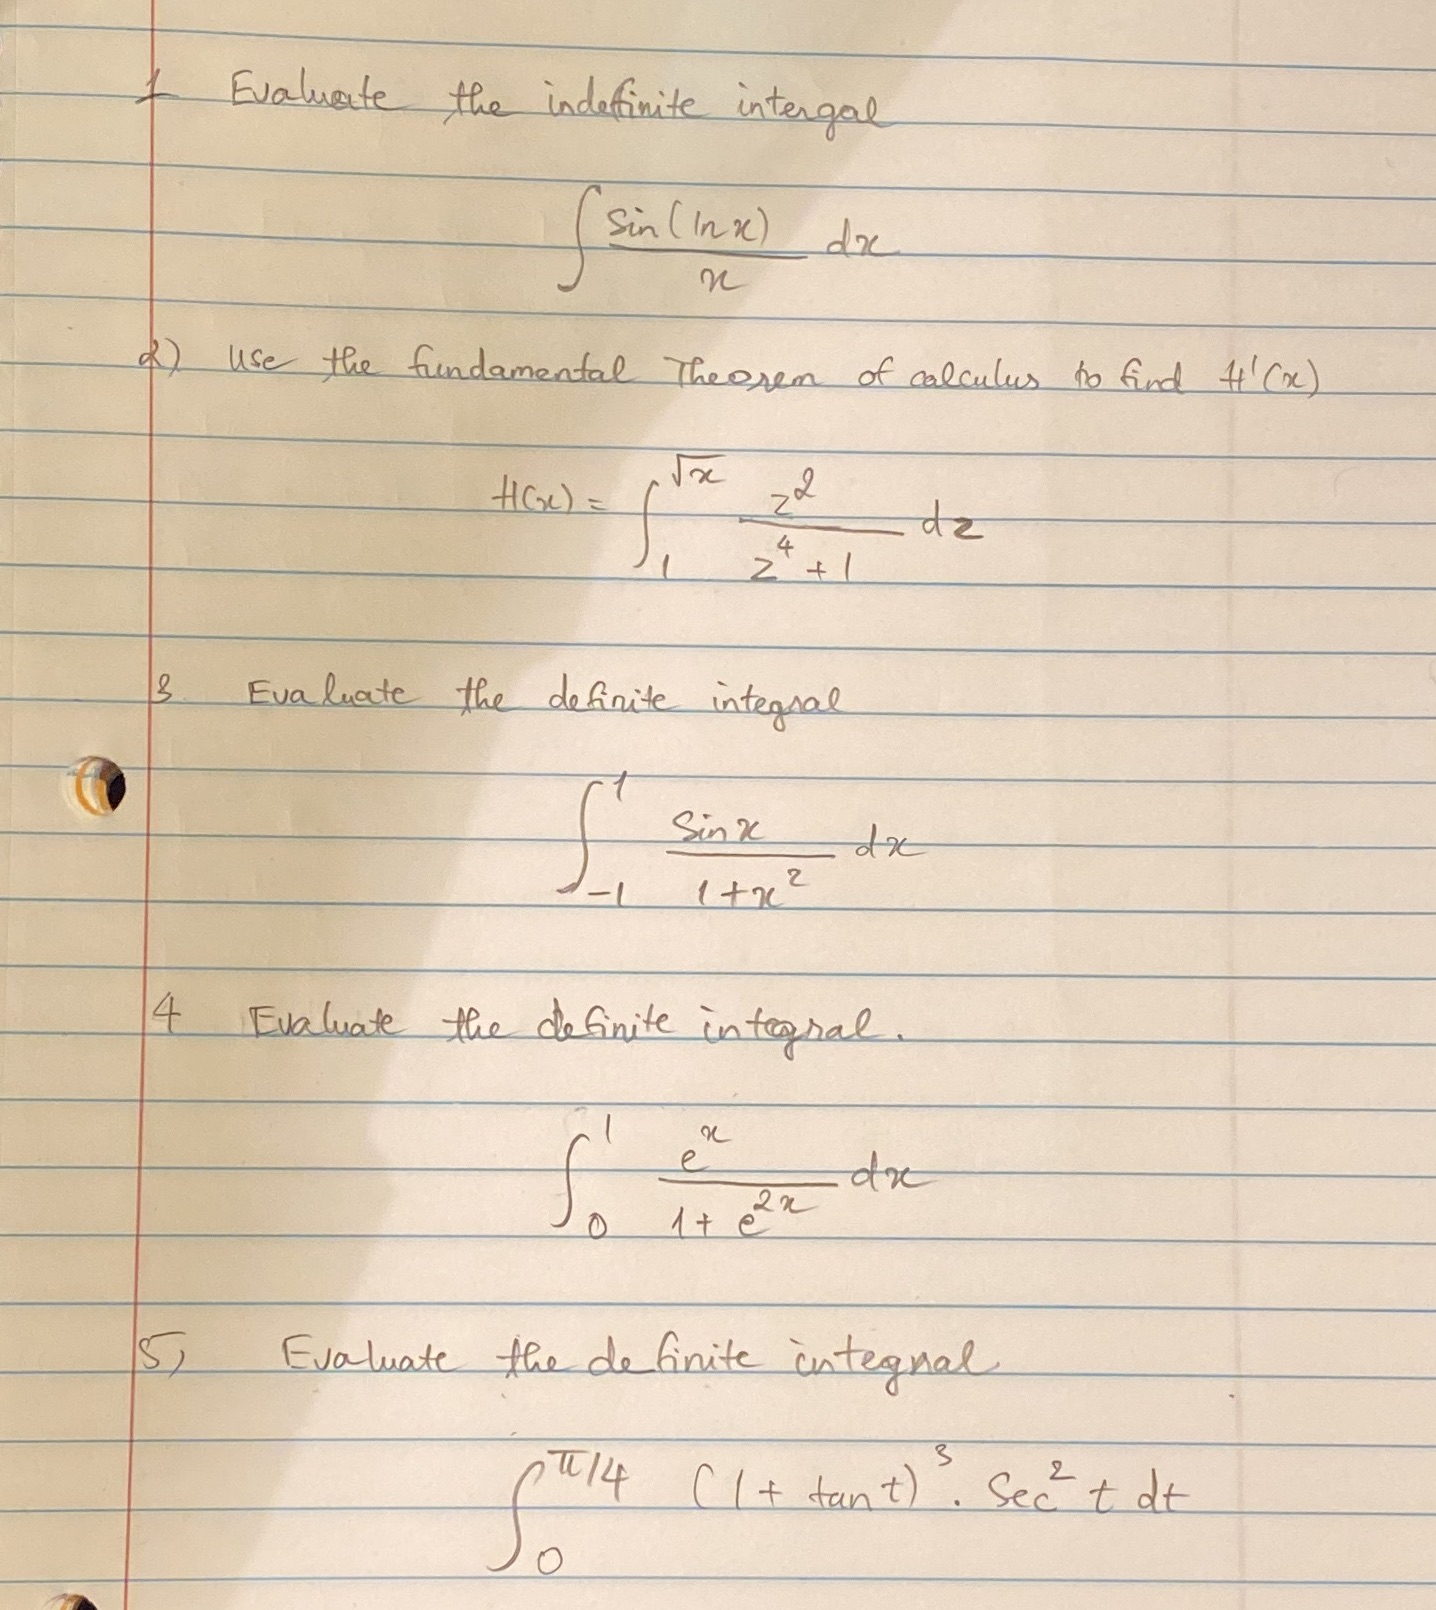 1 Evaluate the indefinite intergal
∫ sin(ln x) / x dx
2) Use the fundamental Theorem of calculus to find H'(x)
H(x) = ∫₁^√x z² / (z⁴ + 1) dz
3 Evaluate the definite integral
∫₋₁^1 sin x / (1 + x²) dx
4 Evaluate the definite integral.
∫₀^1 e^x / (1 + e^2x) dx
5) Evaluate the definite integral
∫₀^π/4 (1 + tan t)³ · sec² t dt